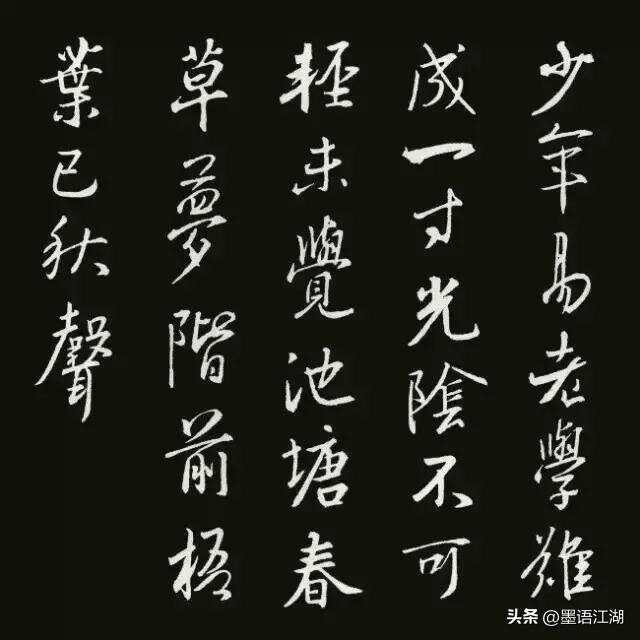 少年易老學難
成一寸光陰不可
輕未覺池塘春
草夢階前梧
葉已秋聲
头条 @墨语江湖